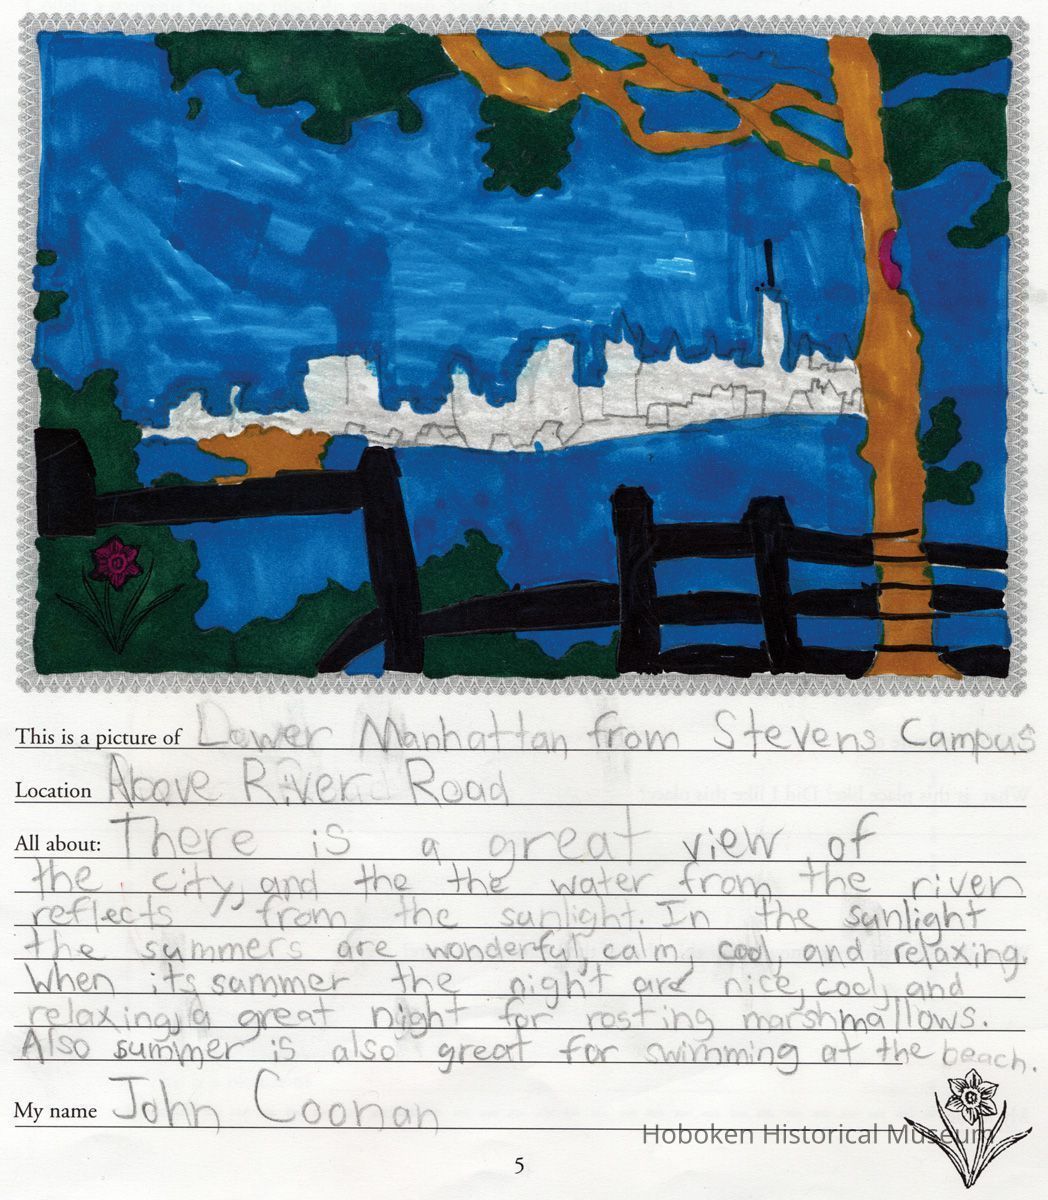 This is a picture of Lower Manhattan from Stevens Campus
Location Above River Road
All about: There is a great view of
the city, and the the water from the river
reflects from the sunlight. In the sunlight
the summers are wonderful, calm, cool, and relaxing.
When its summer the night are nice, cool, and
relaxing, a great night for rosting marshmallows.
Also summer is also great for swimming at the beach.
My name John Coonan
Hoboken Historical Museum
5